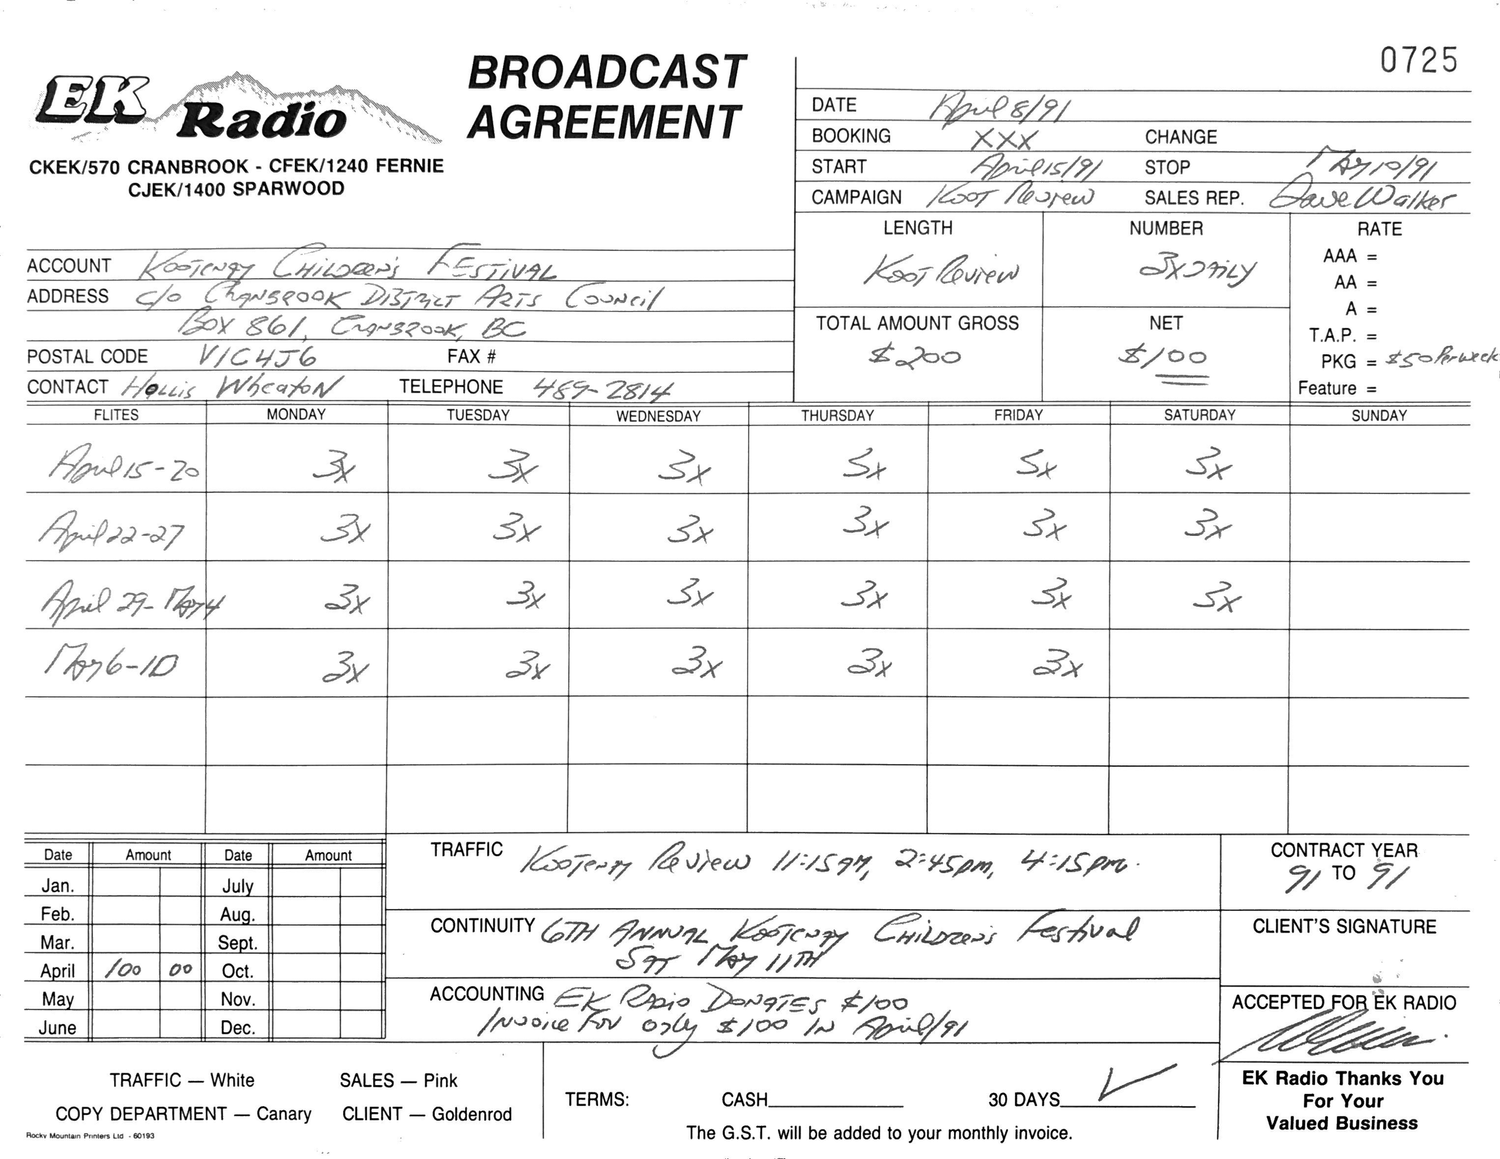 0725
EK Radio
BROADCAST
AGREEMENT
CKEK/570 CRANBROOK - CFEK/1240 FERNIE
CJEK/1400 SPARWOOD
DATE April 8/91
BOOKING XXX CHANGE
START April 15/91 STOP May 10/91
CAMPAIGN Koot Review SALES REP. Dave Walker
ACCOUNT Kootenay Children's Festival
ADDRESS c/o Cranbrook District Arts Council
Box 861, Cranbrook, BC
POSTAL CODE V1C4J6 FAX #
CONTACT Hollis Wheaton TELEPHONE 489-2814
LENGTH NUMBER RATE
Koot Review 3x Daily
AAA =
AA =
A =
T.A.P. =
PKG = $50 Per week
Feature =
TOTAL AMOUNT GROSS NET
$200 $100
FLITES MONDAY TUESDAY WEDNESDAY THURSDAY FRIDAY SATURDAY SUNDAY
April 15-20 3x 3x 3x 3x 3x 3x
April 22-27 3x 3x 3x 3x 3x 3x
April 29-May 4 3x 3x 3x 3x 3x 3x
May 6-10 3x 3x 3x 3x 3x
Date Amount Date Amount
Jan. July
Feb. Aug.
Mar. Sept.
April 100 00 Oct.
May Nov.
June Dec.
TRAFFIC Kootenay Review 11:15am, 2:45pm, 4:15pm.
CONTINUITY 6TH Annual Kootenay Children's Festival
Sat May 11TH
ACCOUNTING EK Radio Donates $100
Invoice For only $100 In April/91
CONTRACT YEAR
91 TO 91
CLIENT'S SIGNATURE
ACCEPTED FOR EK RADIO
TRAFFIC — White SALES — Pink
COPY DEPARTMENT — Canary CLIENT — Goldenrod
Rocky Mountain Printers Ltd - 60193
TERMS: CASH 30 DAYS ✓
The G.S.T. will be added to your monthly invoice.
EK Radio Thanks You
For Your
Valued Business